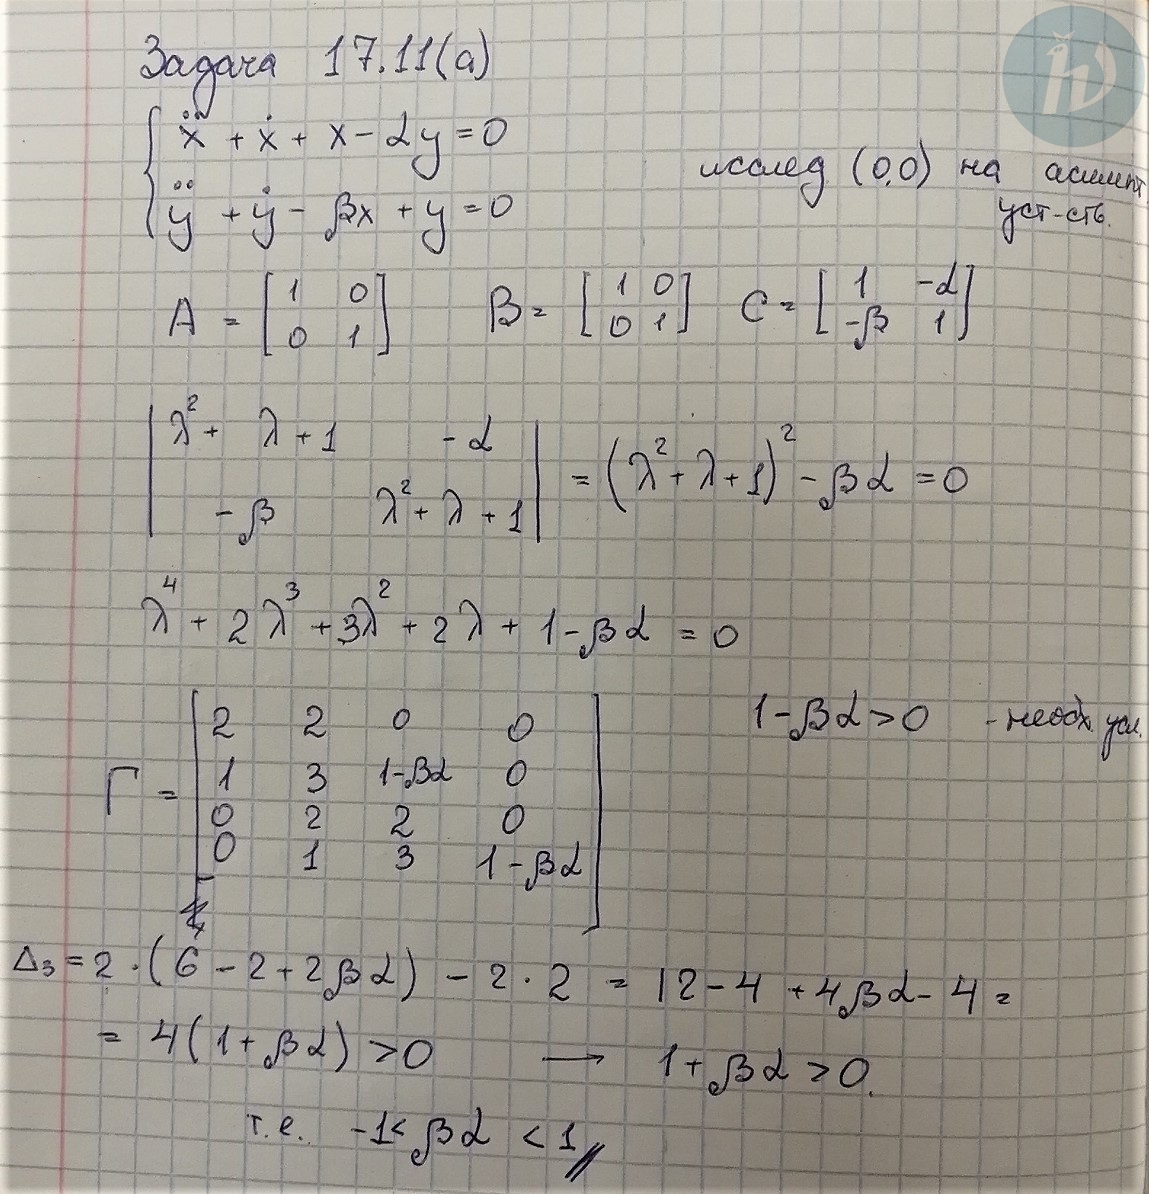 Задача 17.11(а)
ẍ + ẋ + x - αy = 0
ÿ + ẏ - βx + y = 0
исслед (0,0) на асимпт
уст-сть.
A = [1 0
0 1]
B = [1 0
0 1]
C = [1 -α
-β 1]
|λ² + λ + 1 -α
-β λ² + λ + 1| = (λ² + λ + 1)² - βα = 0
λ⁴ + 2λ³ + 3λ² + 2λ + 1 - βα = 0
Γ = [2 2 0 0
1 3 1-βα 0
0 2 2 0
0 1 3 1-βα]
1 - βα > 0 - необх. усл.
Δ₃ = 2·(6 - 2 + 2βα) - 2·2 = 12 - 4 + 4βα - 4 =
= 4(1 + βα) > 0 → 1 + βα > 0.
т.е. -1 < βα < 1